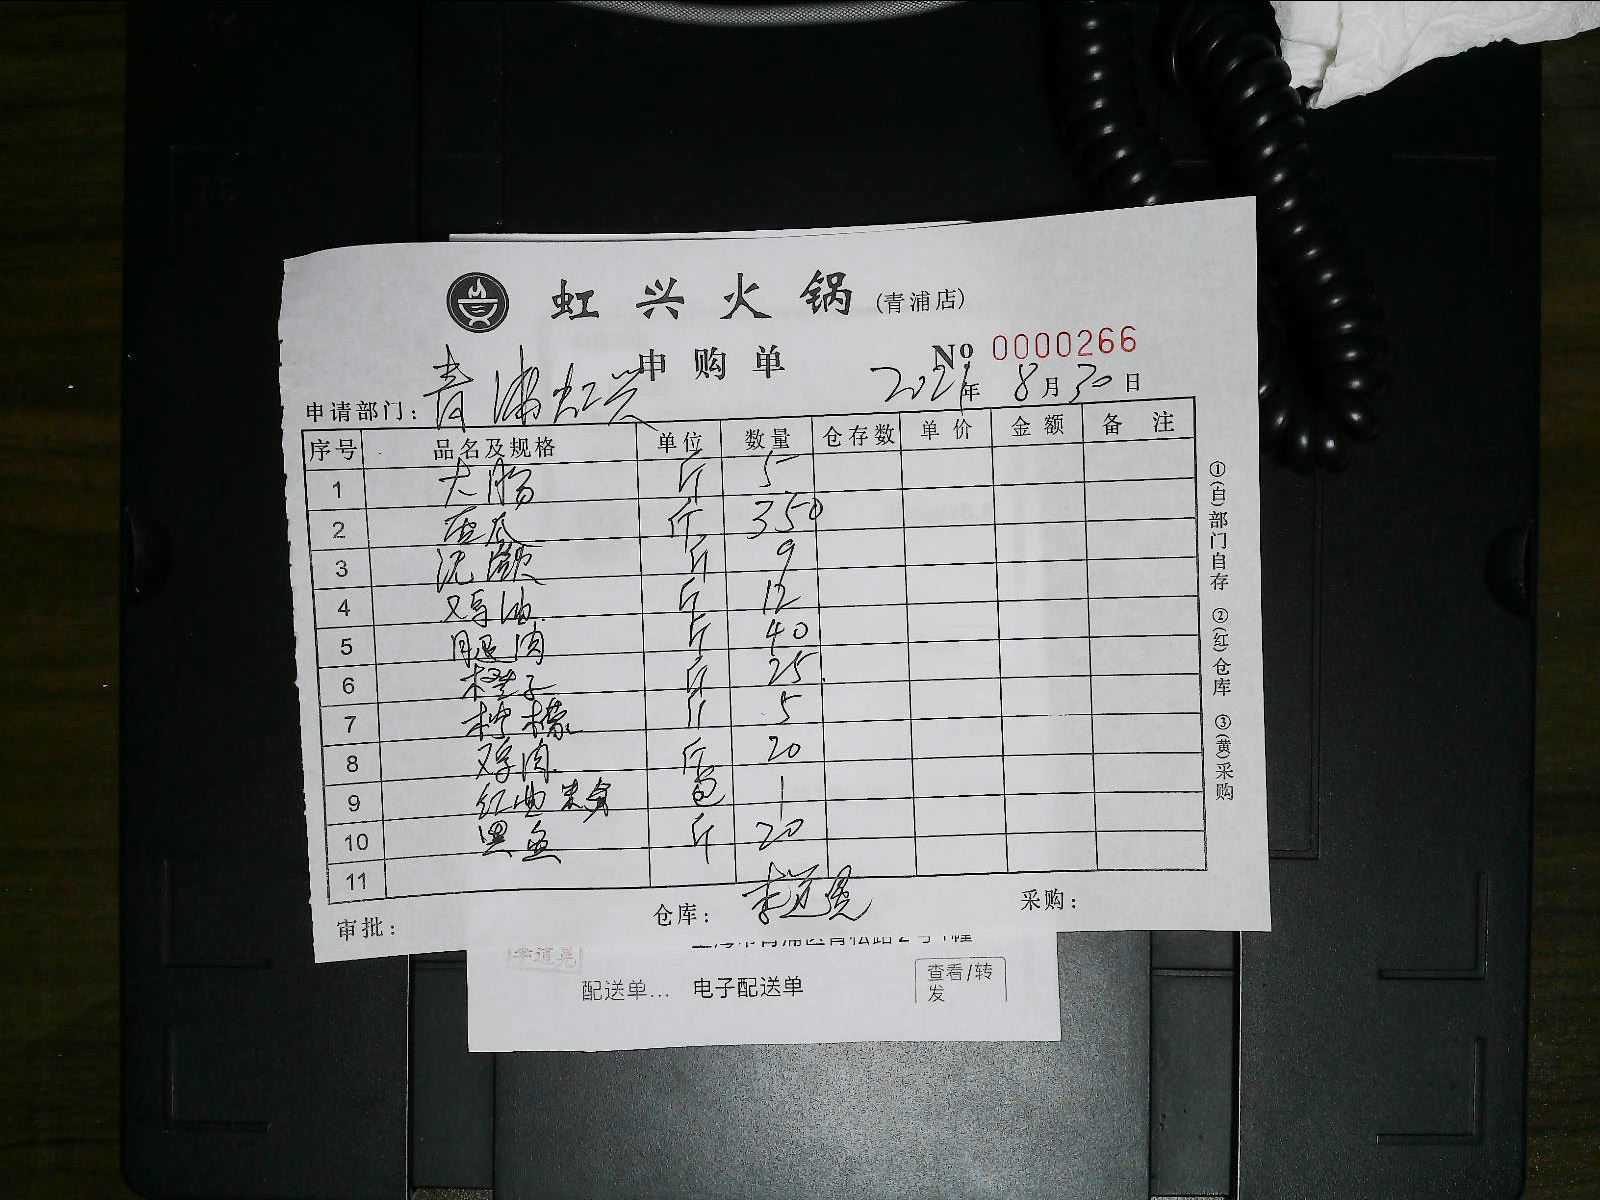 虹兴火锅(青浦店)
申购单 № 0000266
申请部门：青浦虹兴 2021年 8月 30日
序号 品名及规格 单位 数量 仓存数 单价 金额 备注
1 大肠 斤 5
2 西瓜 斤 350
3 斤 9
4 鸡油 斤 12
5 腿肉 斤 40
6 橙子 斤 25
7 柠檬 斤 5
8 鸡肉 斤 20
9 红曲米粉 包 1
10 黑鱼 斤 20
11
审批： 仓库： 采购：
①(白)部门自存 ②(红)仓库 ③(黄)采购
配送单... 电子配送单 查看/转发